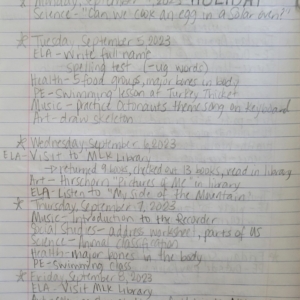 HOLIDAY
Science- "Can we cook an egg in a solar oven?"
* Tuesday, September 5, 2023
ELA- Write full name
spelling test (-ug words)
Health- 5 food groups, major bones in body
PE- Swimming lesson at Turkey Thicket
Music- Practice Octonauts theme song on keyboard
Art- draw skeleton
* Wednesday, September 6, 2023
ELA- Visit to MLK Library
returned 9 books, checked out 13 books, read in library
Art- Hirschorn "Pictures of Me" in library
ELA- Listen to "My Side of the Mountain"
* Thursday, September 7, 2023
Music- Introduction to the Recorder
Social Studies- address worksheet, parts of
Science- Animal classification
Health- major bones in the body
PE- swimming class
* Friday, September 8, 2023
ELA- Visit MLK Library